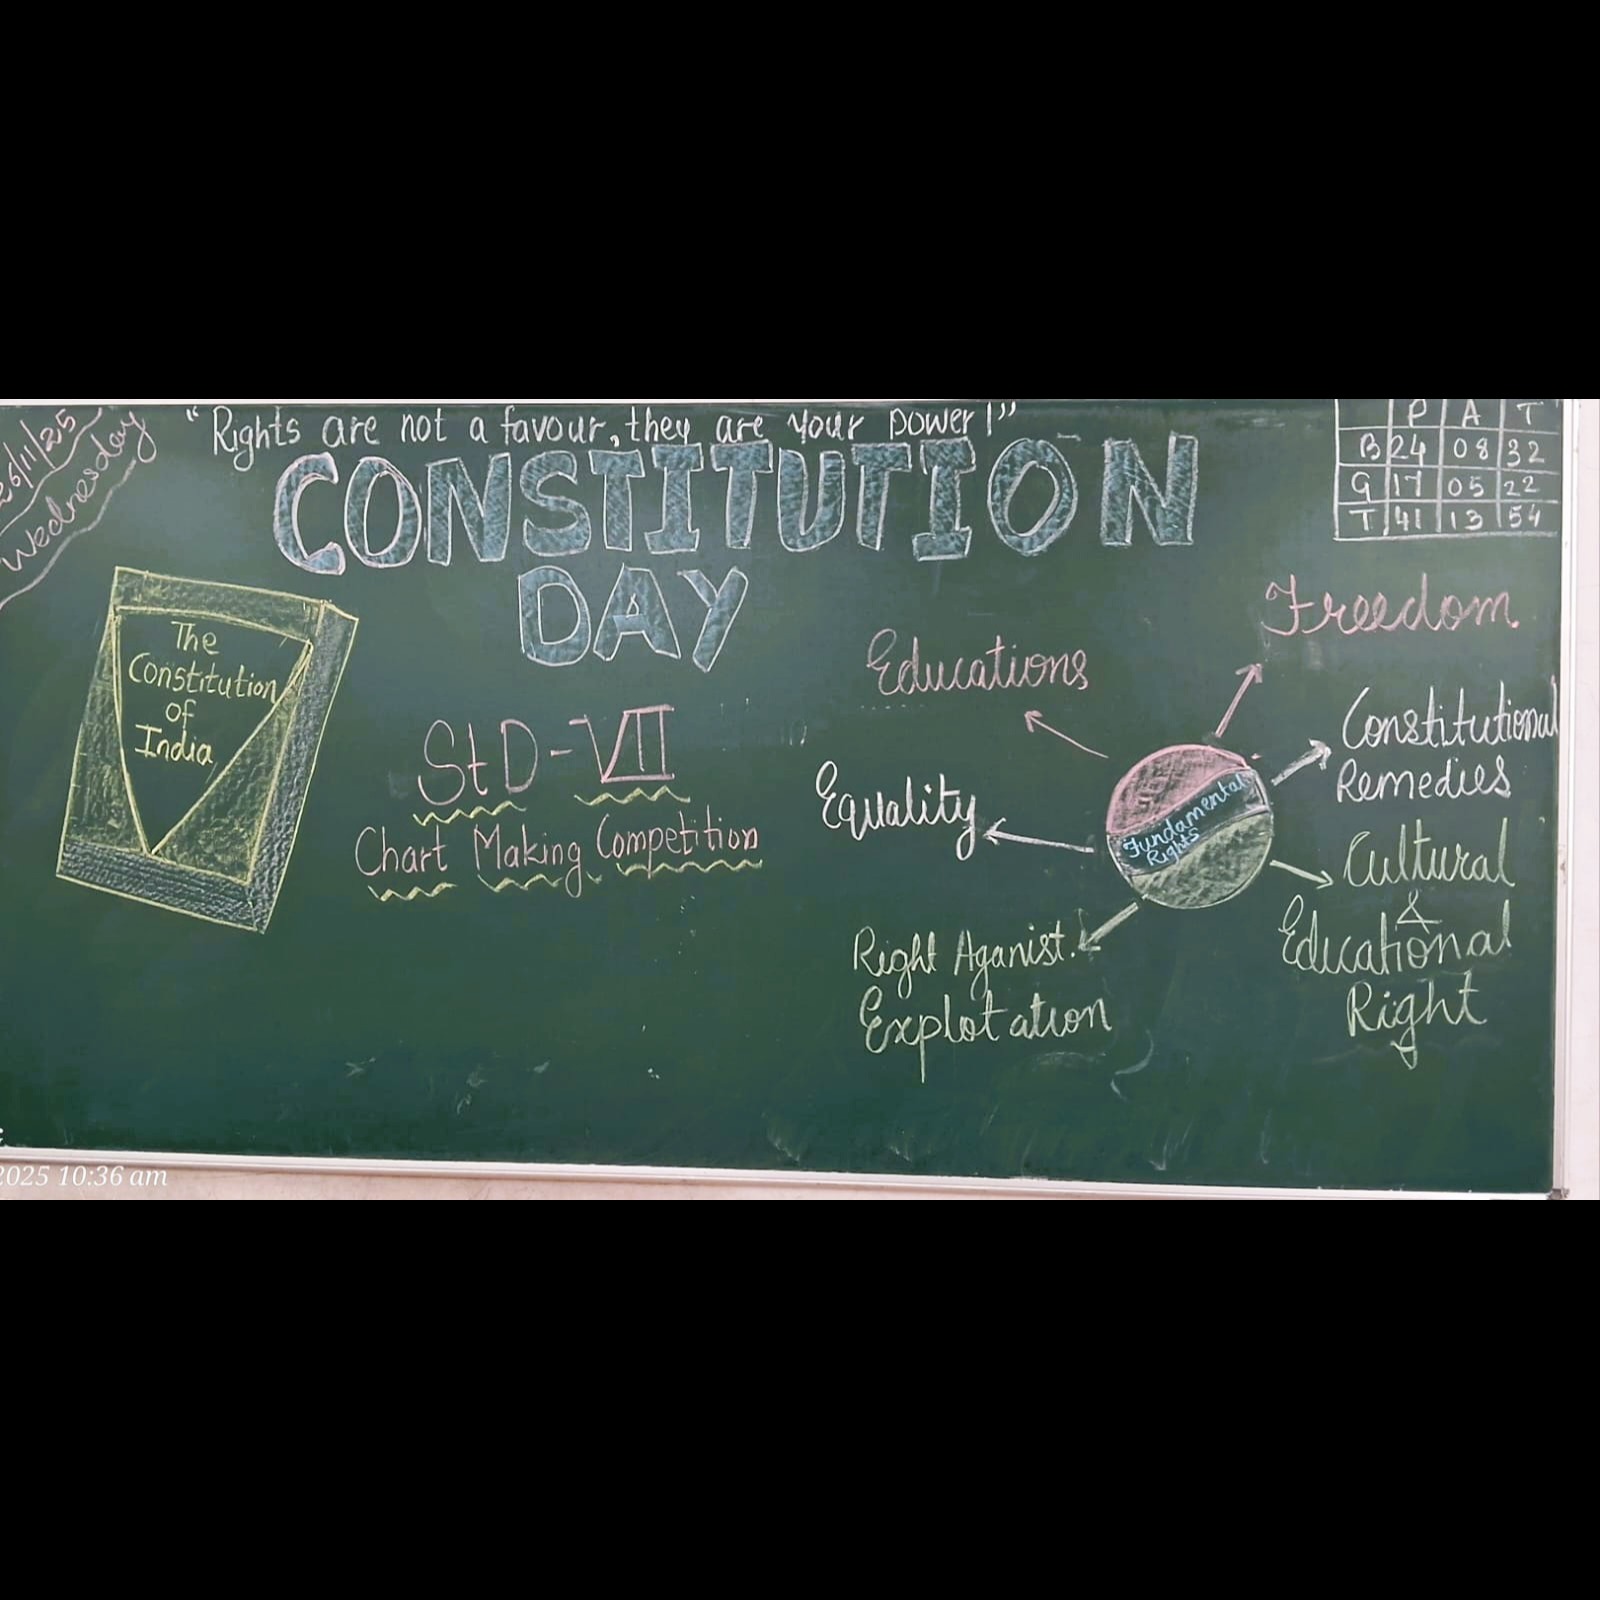 26/11/25
Wednesday
"Rights are not a favour, they are your power!"
CONSTITUTION
DAY
P A T
B 24 08 32
G 17 05 22
T 41 13 54
The
Constitution
of
India
StD-VII
Chart Making Competition
Fundamental
Rights
Educations
Freedom
Equality
Constitutional
Remedies
Right Aganist.
Explotation
Cultural
&
Educational
Right
2025 10:36 am